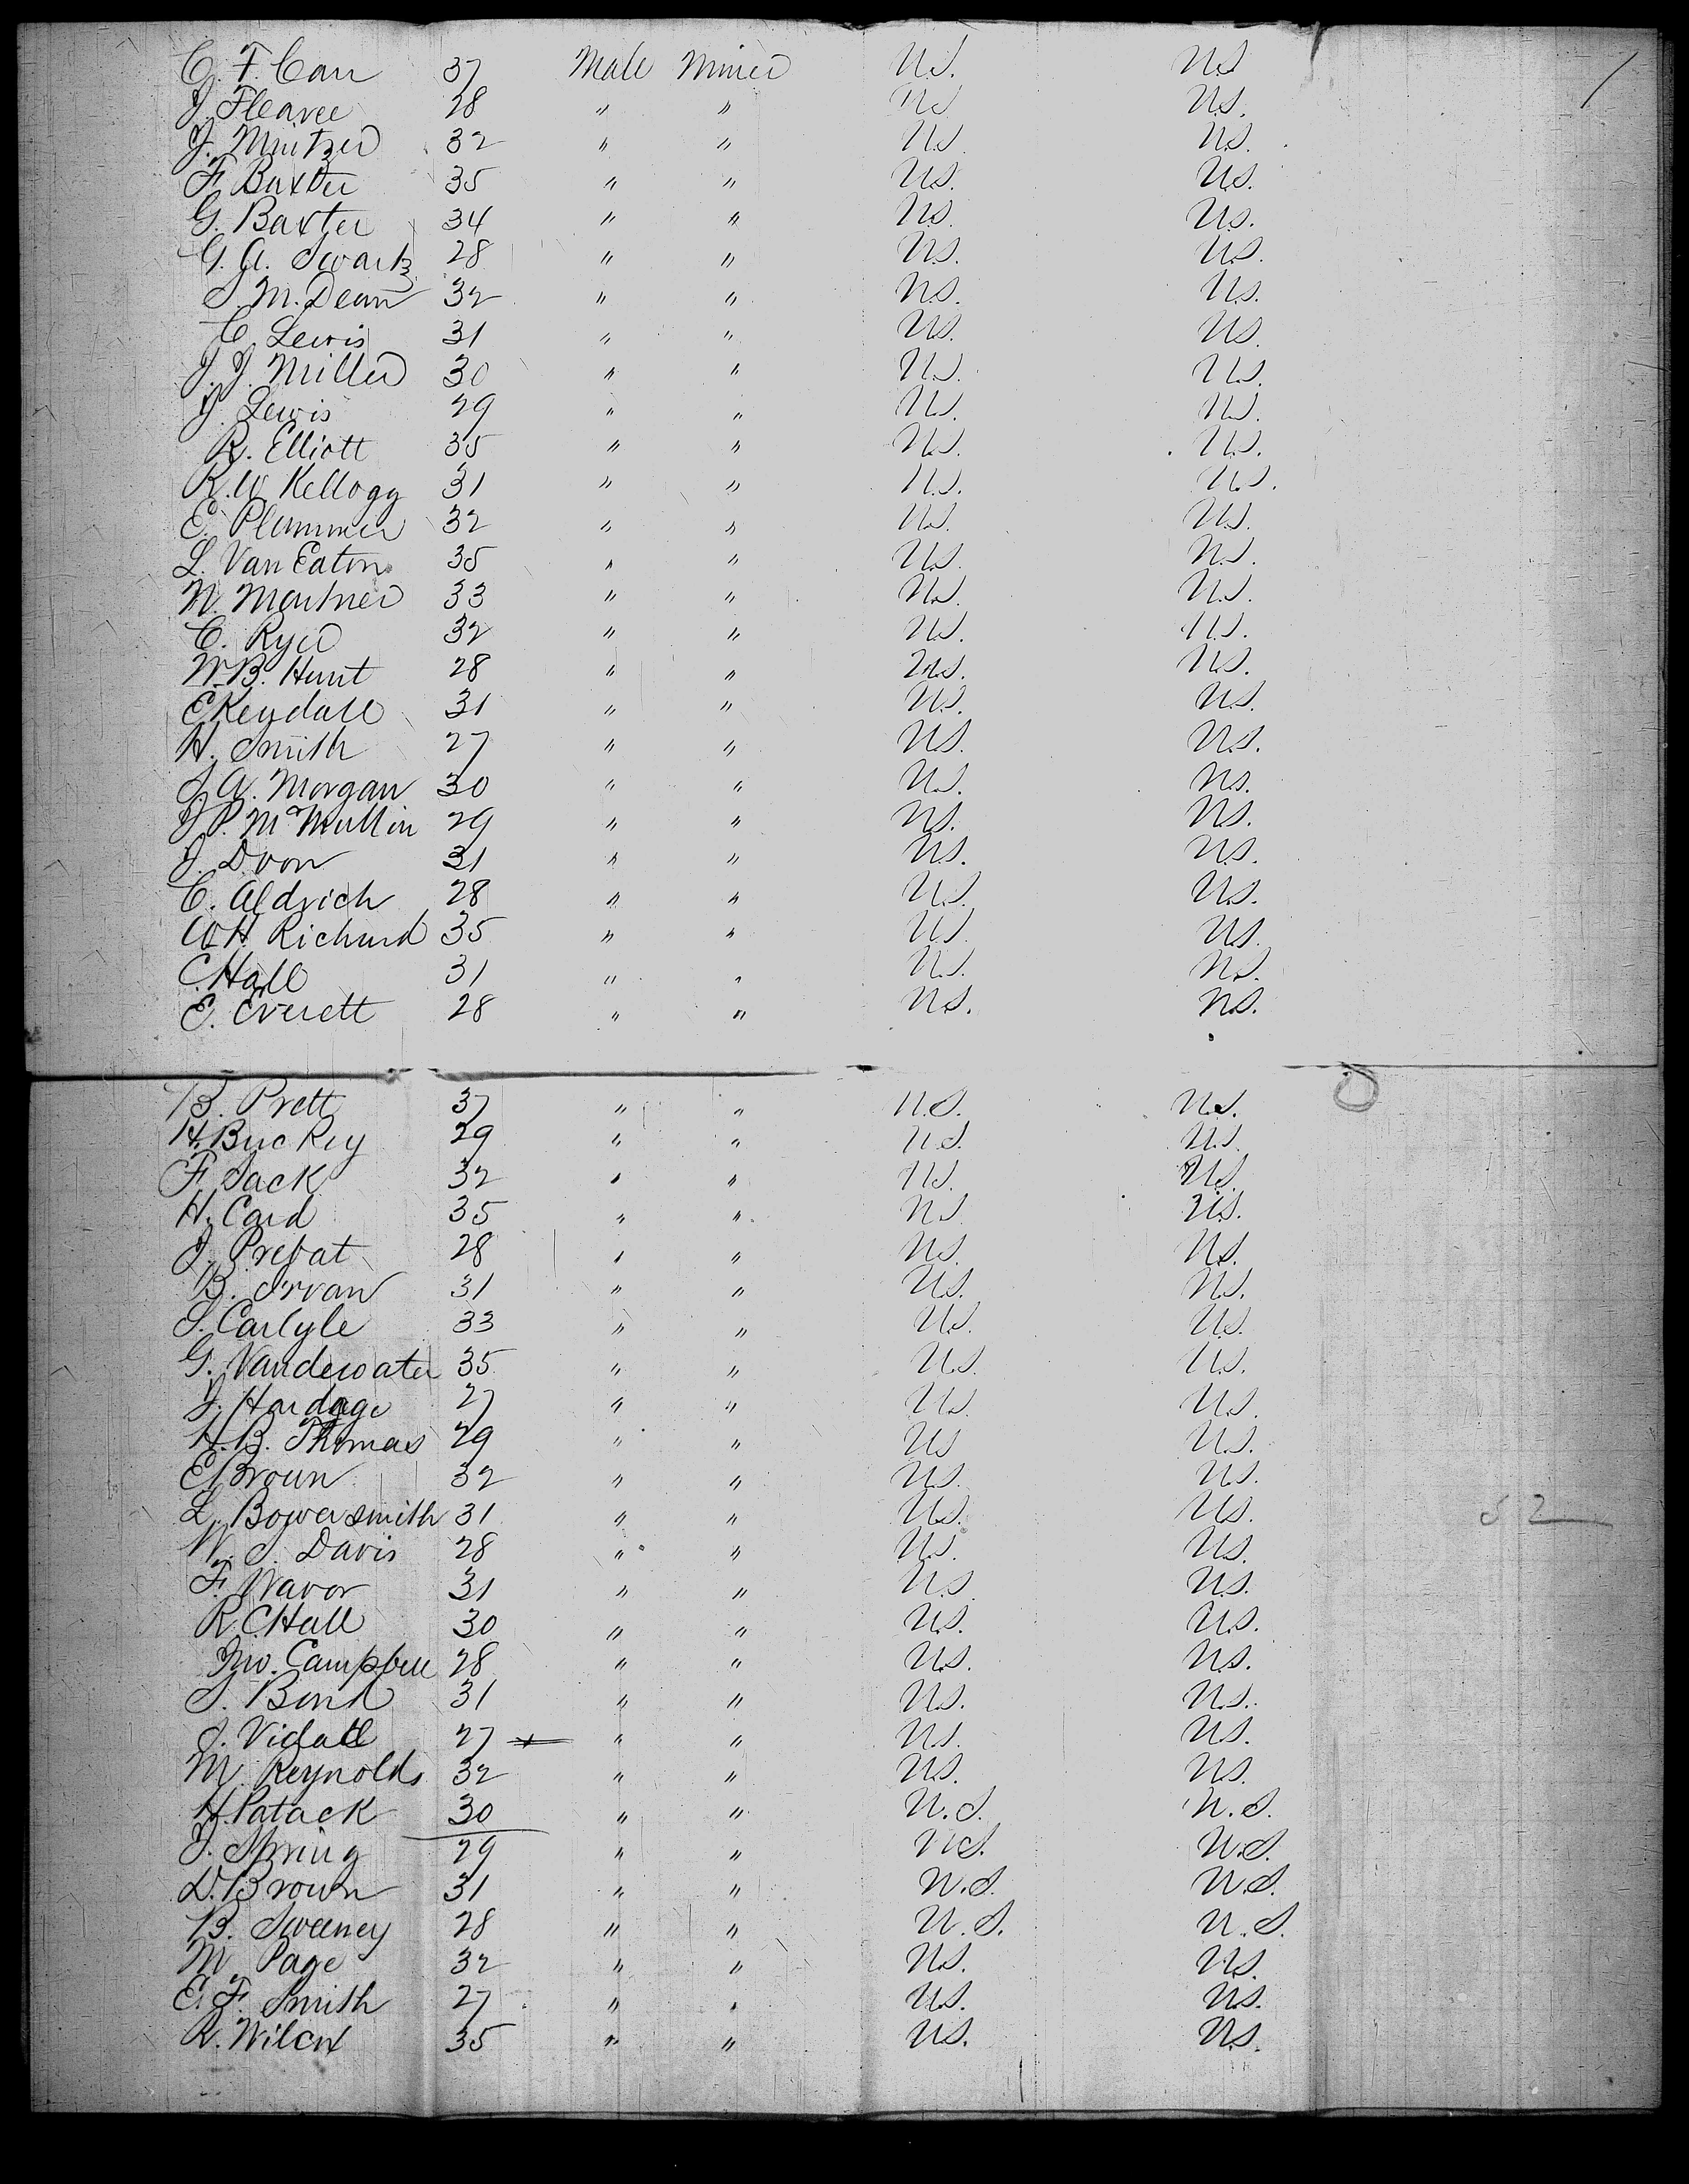 C. F. Carr 37 Male Miner U.S. U.S.
J. Fleavee 28 " " U.S. U.S.
J. Mintzer 32 " " U.S. U.S.
F. Baxter 35 " " U.S. U.S.
G. Baxter 34 " " U.S. U.S.
G. A. Swartz 28 " " U.S. U.S.
S. M. Dean 32 " " U.S. U.S.
C. Lewis 31 " " U.S. U.S.
J. J. Miller 30 " " U.S. U.S.
J. Lewis 29 " " U.S. U.S.
R. Elliott 35 " " U.S. U.S.
R. W. Kellogg 31 " " U.S. U.S.
E. Plummer 32 " " U.S. U.S.
L. Van Eaton 35 " " U.S. U.S.
N. Mortner 33 " " U.S. U.S.
C. Ryer 32 " " U.S. U.S.
W. B. Hunt 28 " " U.S. U.S.
C Keydall 31 " " U.S. U.S.
H. Smith 27 " " U.S. U.S.
S. A. Morgan 30 " " U.S. U.S.
J. P. McMullin 29 " " U.S. U.S.
J. Doon 31 " " U.S. U.S.
C. Aldrich 28 " " U.S. U.S.
W. H. Richard 35 " " U.S. U.S.
C. Hall 31 " " U.S. U.S.
E. Everett 28 " " U.S. U.S.
B. Prett 37 " " U.S. U.S.
H. Buckey 29 " " U.S. U.S.
F. Jack 32 " " U.S. U.S.
H. Card 35 " " U.S. U.S.
J. Prefat 28 " " U.S. U.S.
B. Irvan 31 " " U.S. U.S.
S. Carlyle 33 " " U.S. U.S.
G. Vandewater 35 " " U.S. U.S.
J. Hardage 27 " " U.S. U.S.
H. B. Thomas 29 " " U.S. U.S.
E. Broun 32 " " U.S. U.S.
L. Bowersmith 31 " " U.S. U.S. 52
W. S. Davis 28 " " U.S. U.S.
F. Wavor 31 " " U.S. U.S.
R. C. Hall 30 " " U.S. U.S.
Jno. Campbell 28 " " U.S. U.S.
S. Bond 31 " " U.S. U.S.
J. Vidall 27 " " U.S. U.S.
M. Reynolds 32 " " U.S. U.S.
H. Patack 30 " " U.S. U.S.
J. Spring 29 " " U.S. U.S.
D. Brown 31 " " U.S. U.S.
B. Sweeney 28 " " U.S. U.S.
M. Page 32 " " U.S. U.S.
E. F. Smith 27 " " U.S. U.S.
R. Wilcox 35 " " U.S. U.S.